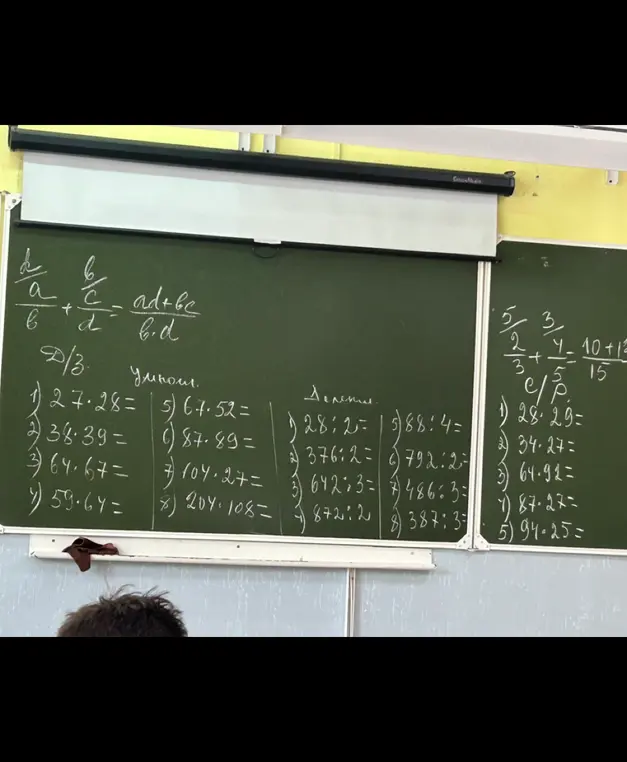 d/ b/
a/b + c/d = ad+bc/b·d
Д/З.
Умнож.
1) 27·28=
2) 38·39=
3) 64·67=
4) 59·64=
5) 67·52=
6) 87·89=
7) 104·27=
8) 204·108=
Делени
1) 28:2=
2) 376:2=
3) 642:3=
4) 872:2
5) 88:4=
6) 792:2=
7) 486:3=
8) 387:3=
5/ 3/
2/3 + 4/5 = 10+1 /15
С/Р.
1) 28·29=
2) 34·27=
3) 64·92=
4) 87·27=
5) 94·25=